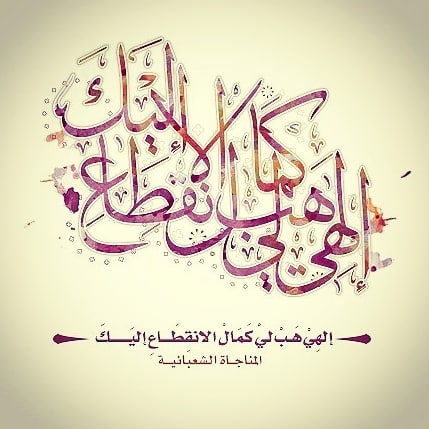 إلهي هب لي كمال الانقطاع إليك
إلهِيْ هَبْ ليْ كَمَالْ الانقطَـاعِ إليَـــكَ
المناجاة الشعبانية